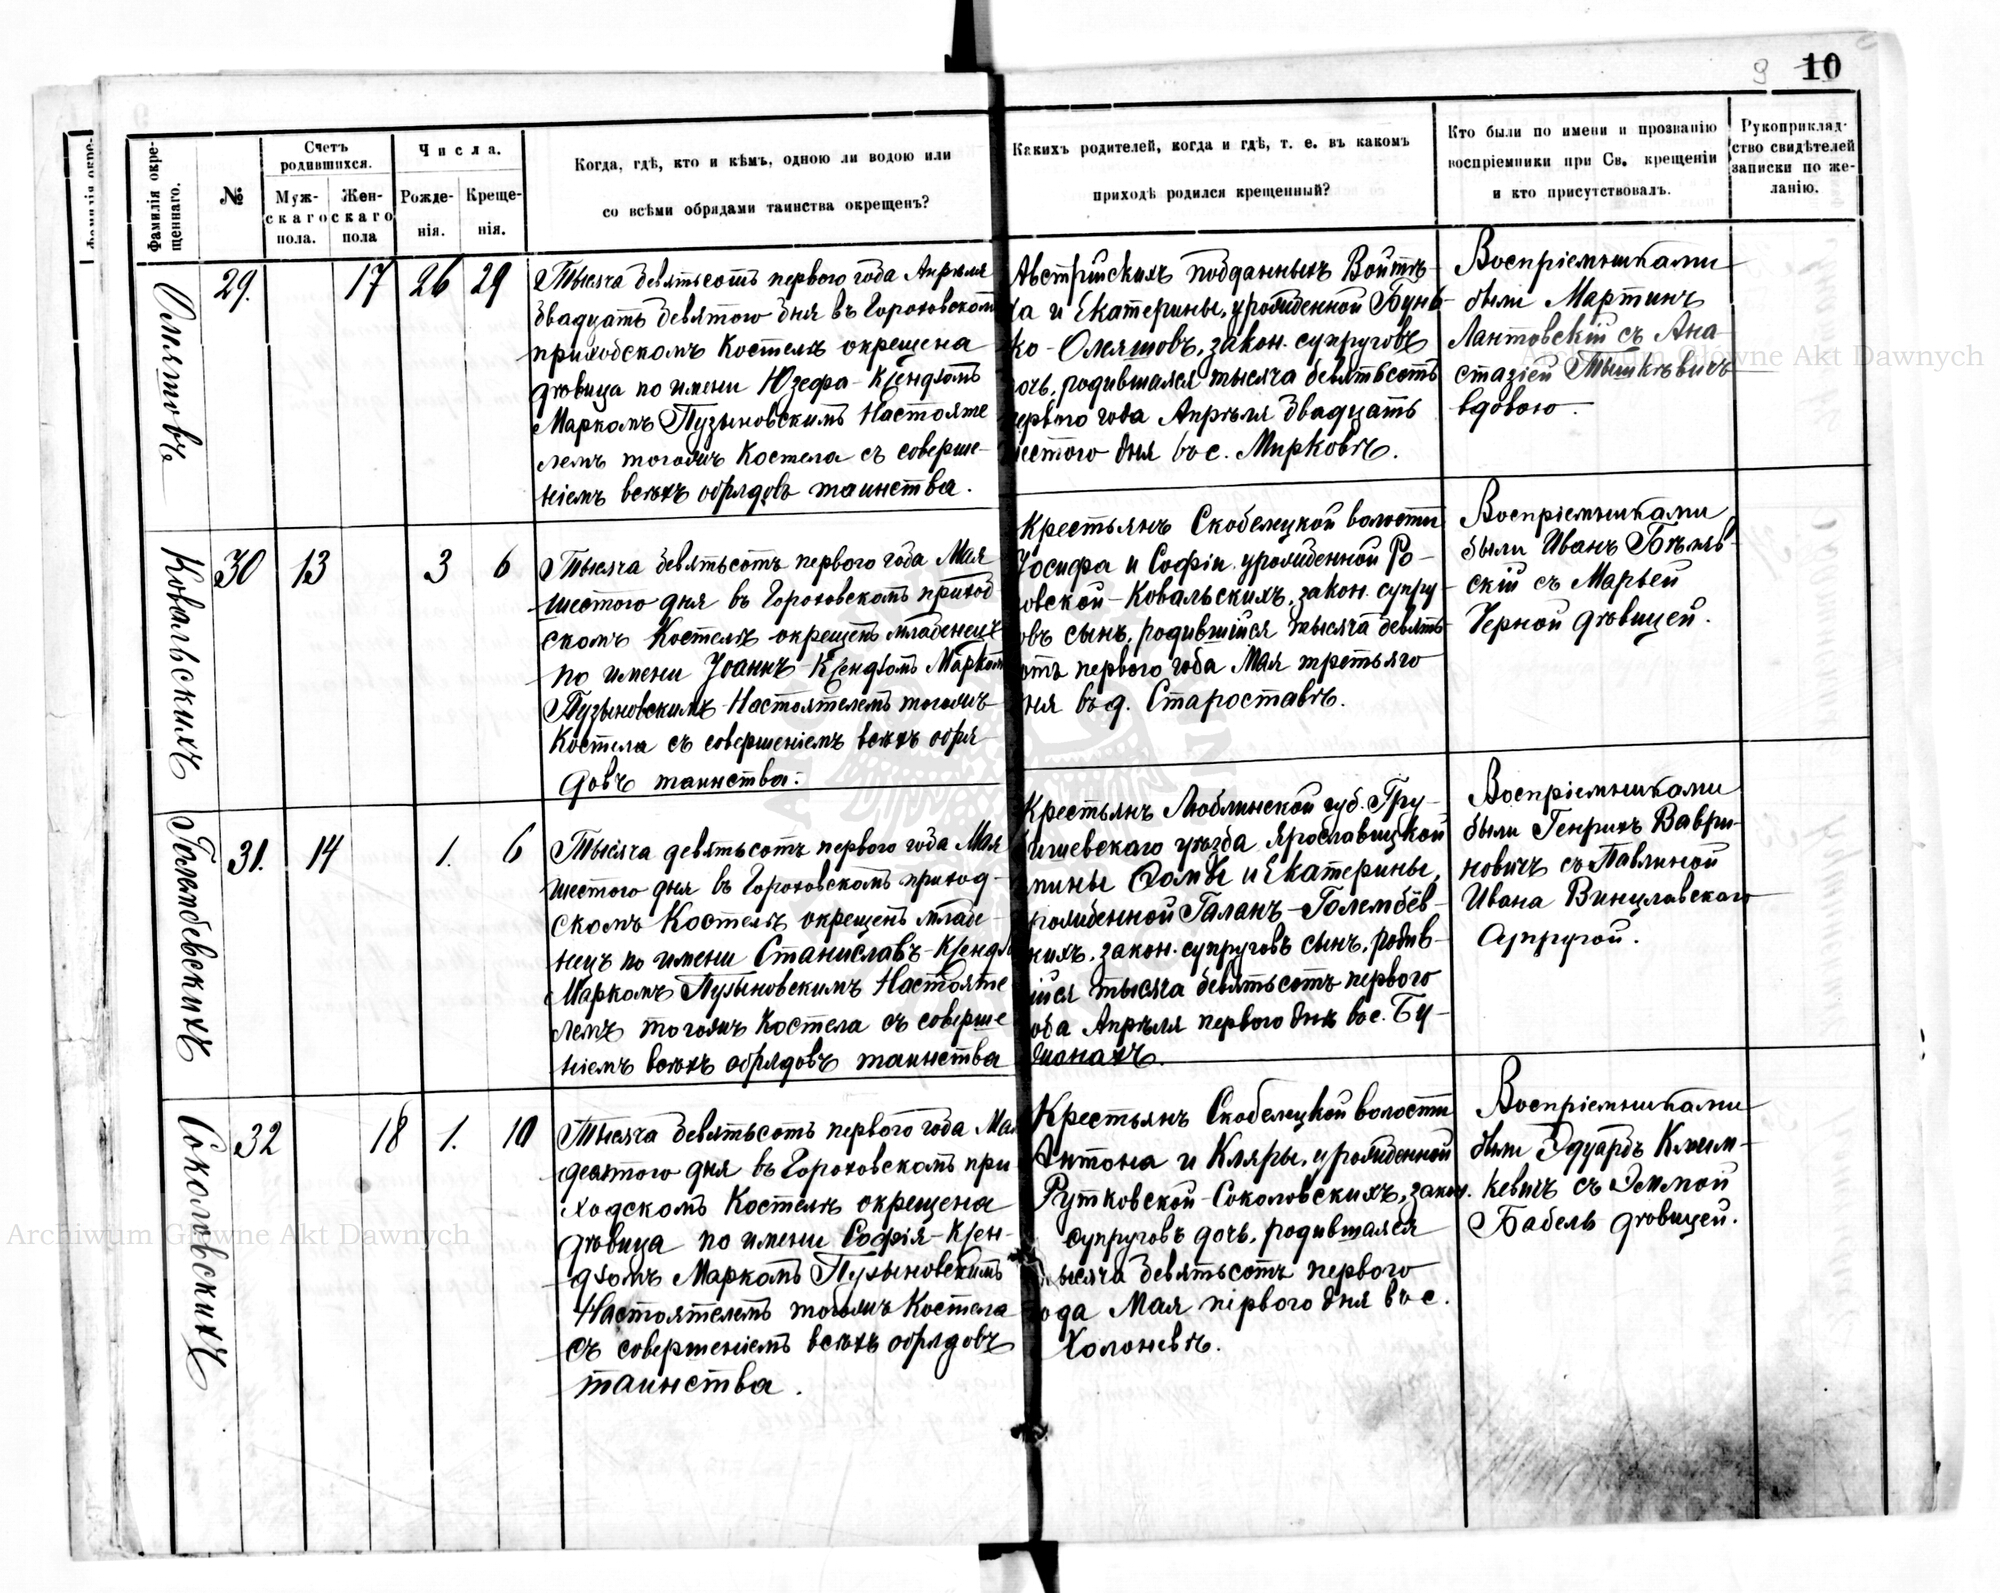 9 10
Фамилія окре-
щеннаго.
№
Счетъ
родившихся.
Муж-
скаго
пола.
Жен-
скаго
пола
Числа.
Рожде-
нія.
Креще-
нія.
Когда, гдѣ, кто и кѣмъ, одною ли водою или
со всѣми обрядами таинства окрещенъ?
Какихъ родителей, когда и гдѣ, т. е. въ какомъ
приходѣ родился крещенный?
Кто были по имени и прозванію
воспріемники при Св. крещеніи
и кто присутствовалъ.
Рукоприклад-
ство свидѣтелей
записки по же-
ланію.
Оляшовъ
29. 17 26 29
Тысяча девятьсотъ перваго года Апрѣля
двадцать девятого дня въ Гороховскомъ
приходскомъ Костелѣ окрещена
дѣвица по имени Юзефа - Ксендзомъ
Маркомъ Пузыновскимъ Настояте
лемъ тогожъ Костела съ соверше-
ніемъ всѣхъ обрядовъ таинства.
Австрійскихъ подданныхъ Войтѣ-
ха и Екатерины, урожденной Бунь-
ко - Оляшовъ, закон. супруговъ
дочь, родившаяся тысяча девятьсотъ
первого года Апрѣля двадцать
шестого дня въ с. Мирковѣ.
Воспріемниками
были Мартинъ
Лантовскій съ Ана-
стазіей Тышкѣвичъ
вдовою.
Ковальскихъ
30 13 3 6
Тысяча девятьсотъ первого года Мая
шестого дня въ Гороховскомъ приход
скомъ Костелѣ окрещенъ младенецъ
по имени Іоаннъ - Ксендзомъ Маркомъ
Пузыновскимъ Настоятелемъ тогожъ
Костела съ совершеніемъ всѣхъ обря-
довъ таинства.
Крестьянъ Скобелуцкой волости
Іосифа и Софіи, урожденной Ро-
совской - Ковальскихъ, закон. супру-
говъ сынъ, родившійся тысяча девять
сотъ первого года Мая третьяго
дня въ д. Староставѣ.
Воспріемниками
были Иванъ Бѣльв-
скій съ Марьей
Черной дѣвицей.
Голембевскихъ
31. 14 1. 6
Тысяча девятьсотъ первого года Мая
шестого дня въ Гороховскомъ приход-
скомъ Костелѣ окрещенъ младе-
нецъ по имени Станиславъ - Ксендз
Маркомъ Пузыновскимъ Настояте
лемъ тогожъ Костела съ соверше
ніемъ всѣхъ обрядовъ таинства
Крестьянъ Люблинской губ. Гру-
бишевскаго уѣзда Ярославицкой
гмины Фомы и Екатерины,
урожденной Галанъ - Голембев-
скихъ, закон. супруговъ сынъ, родив-
шійся тысяча девятьсотъ первого
года Апрѣля первого дня въ с. Бу-
шанахъ.
Воспріемниками
были Генрихъ Ваври-
новичъ съ Павлиной
Ивана Винцлавскаго
супругой.
Соколовскихъ
32 18 1. 10
Тысяча девятьсотъ первого года Мая
десятого дня въ Гороховскомъ при
ходскомъ Костелѣ окрещена
дѣвица по имени Софія - Ксен-
дзомъ Маркомъ Пузыновскимъ
Настоятелемъ тогожъ Костела
съ совершеніемъ всѣхъ обрядовъ
таинства.
Крестьянъ Скобелуцкой волости
Антона и Кляры, урожденной
Рутковской - Соколовскихъ, закон.
супруговъ дочь, родившаяся
тысяча девятьсотъ первого
года Мая первого дня въ с.
Холоневѣ.
Воспріемниками
были Эдуардъ Клим-
кевичъ съ Эммой
Бабель дѣвицей.
Archiwum Główne Akt Dawnych
Archiwum Główne Akt Dawnych